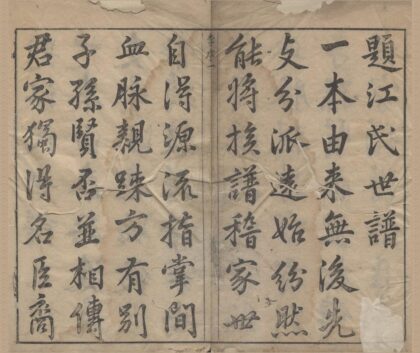 題江氏世譜
一本由来無後先
支分派遠始紛然
能將族譜稽家世
自得源流指掌間
血脉親踈方有別
子孫賢否並相傳
君家獨得名臣裔